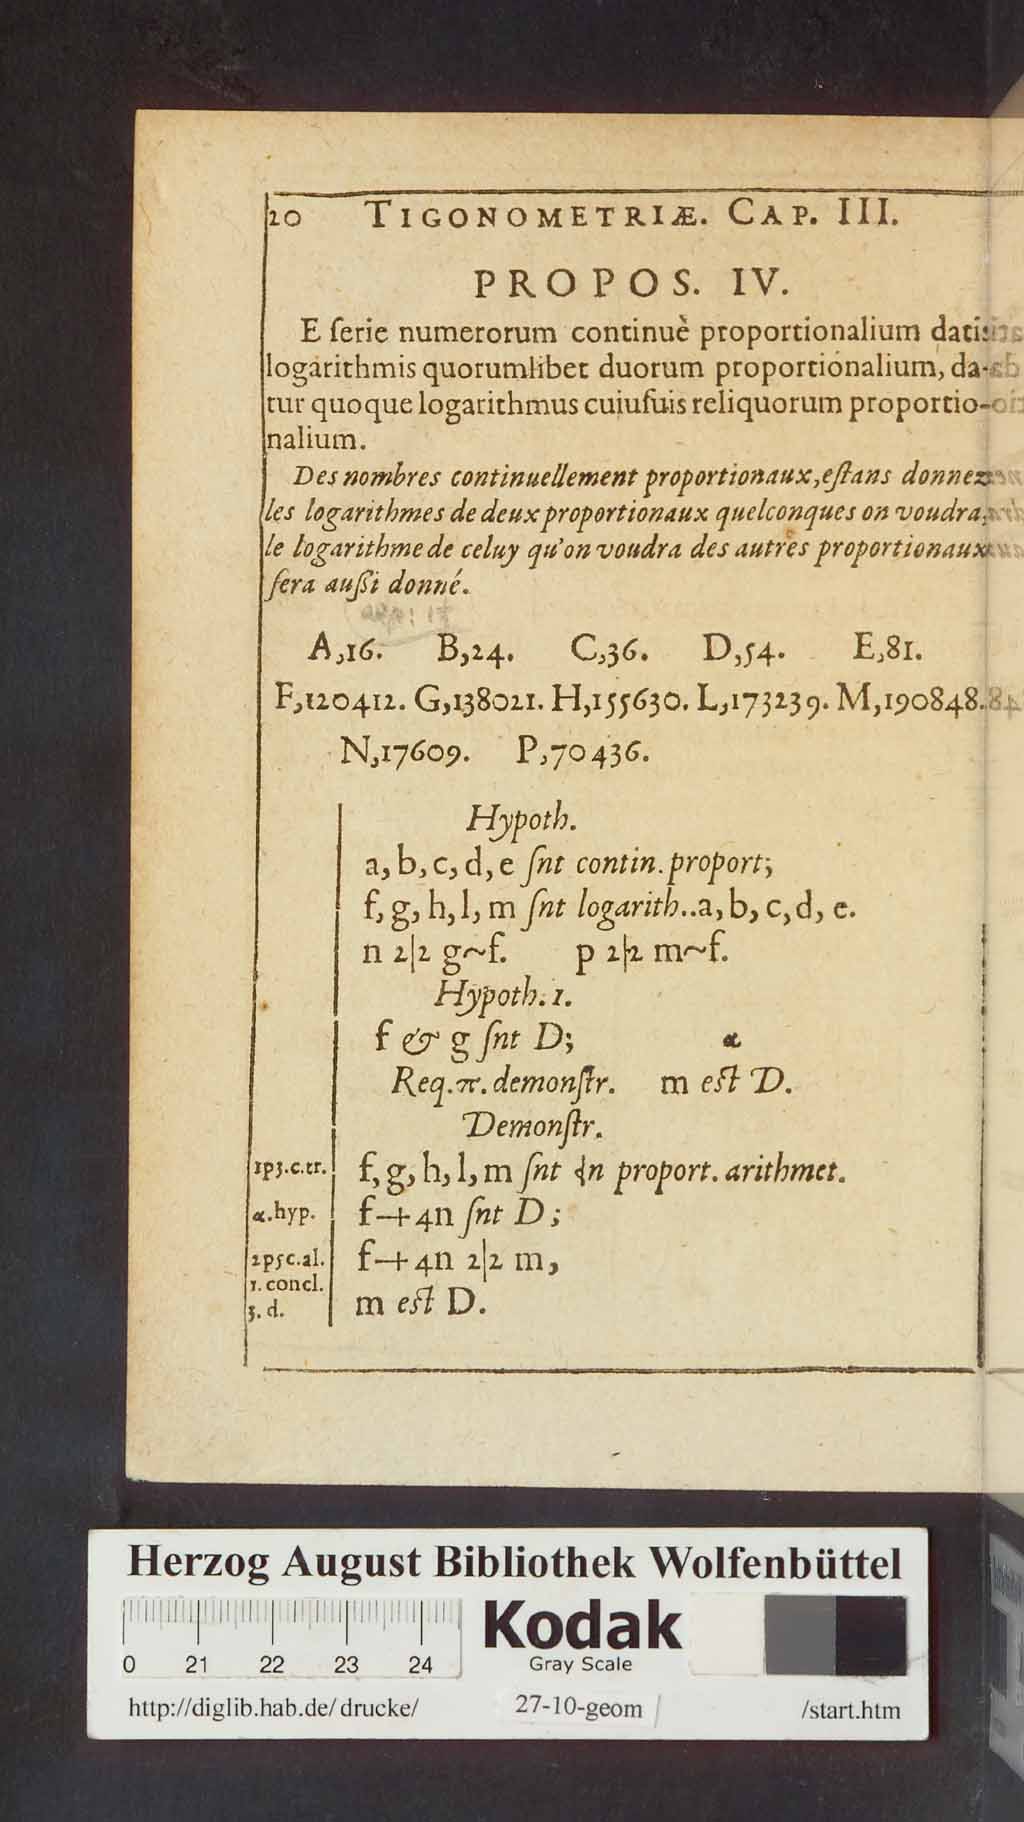 20 TIGONOMETRIÆ. CAP. III.
PROPOS. IV.
E ſerie numerorum continuè proportionalium datis
logarithmis quorumlibet duorum proportionalium, da-
tur quoque logarithmus cuiuſuis reliquorum proportio-
nalium.
Des nombres continuellement proportionaux, eſtans donnez
les logarithmes de deux proportionaux quelconques on voudra,
le logarithme de celuy qu'on voudra des autres proportionaux
ſera außi donné.
A,16. B,24. C,36. D,54. E,81.
F,120412. G,138021. H,155630. L,173239. M,190848.
N,17609. P,70436.
Hypoth.
a, b, c, d, e ſnt contin. proport;
f, g, h, l, m ſnt logarith..a, b, c, d, e.
n 2|2 g~f. p 2|2 m~f.
Hypoth. 1.
f & g ſnt D; α
Req. π. demonſtr. m eſt D.
Demonſtr.
1p3.c.tr. f, g, h, l, m ſnt in proport. arithmet.
α.hyp. f+4n ſnt D;
2p5c.al. f+4n 2|2 m,
1. concl.
3. d. m eſt D.
Herzog August Bibliothek Wolfenbüttel
Kodak
Gray Scale
0 21 22 23 24
http://diglib.hab.de/drucke/ 27-10-geom /start.htm